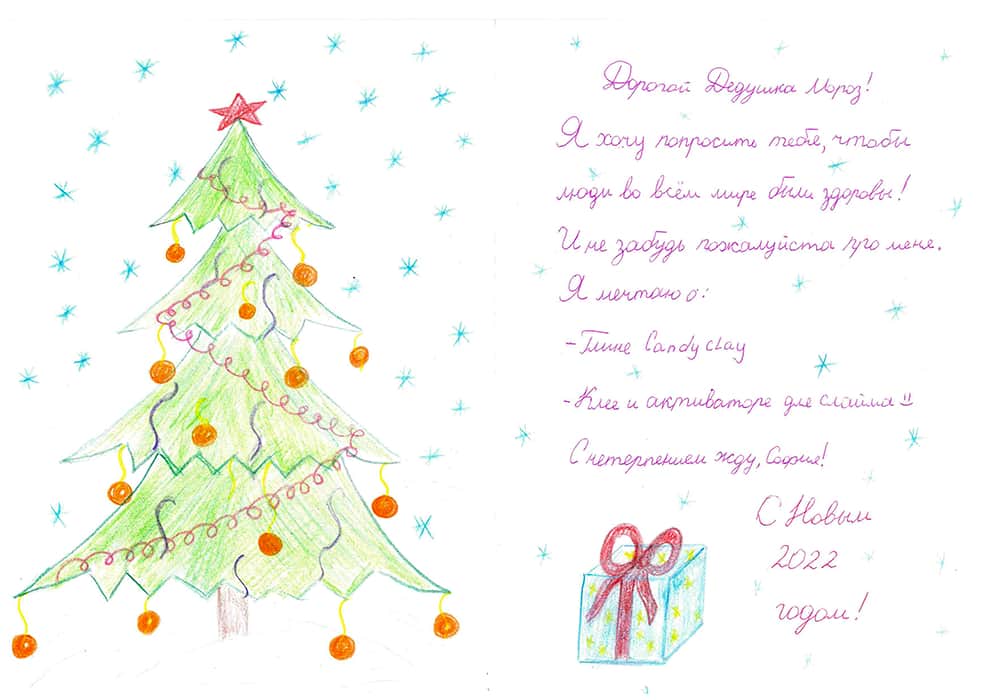 Дорогой Дедушка Мороз!
Я хочу попросить тебя, чтобы
люди во всём мире были здоровы!
И не забудь пожалуйста про меня.
Я мечтаю о:
- Глине Candy clay
- Клее и активаторе для слайма =)
С нетерпением жду, София!
С Новым
2022
годом!